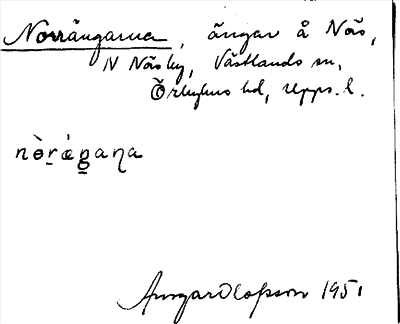 Norrängarna, ängar å Näs,
N Näsby, Västlands sn,
Örbyhus hd, Upps. l.
nòr̠ǽŋ̠aɳa
Ansgar Olofsson 1951